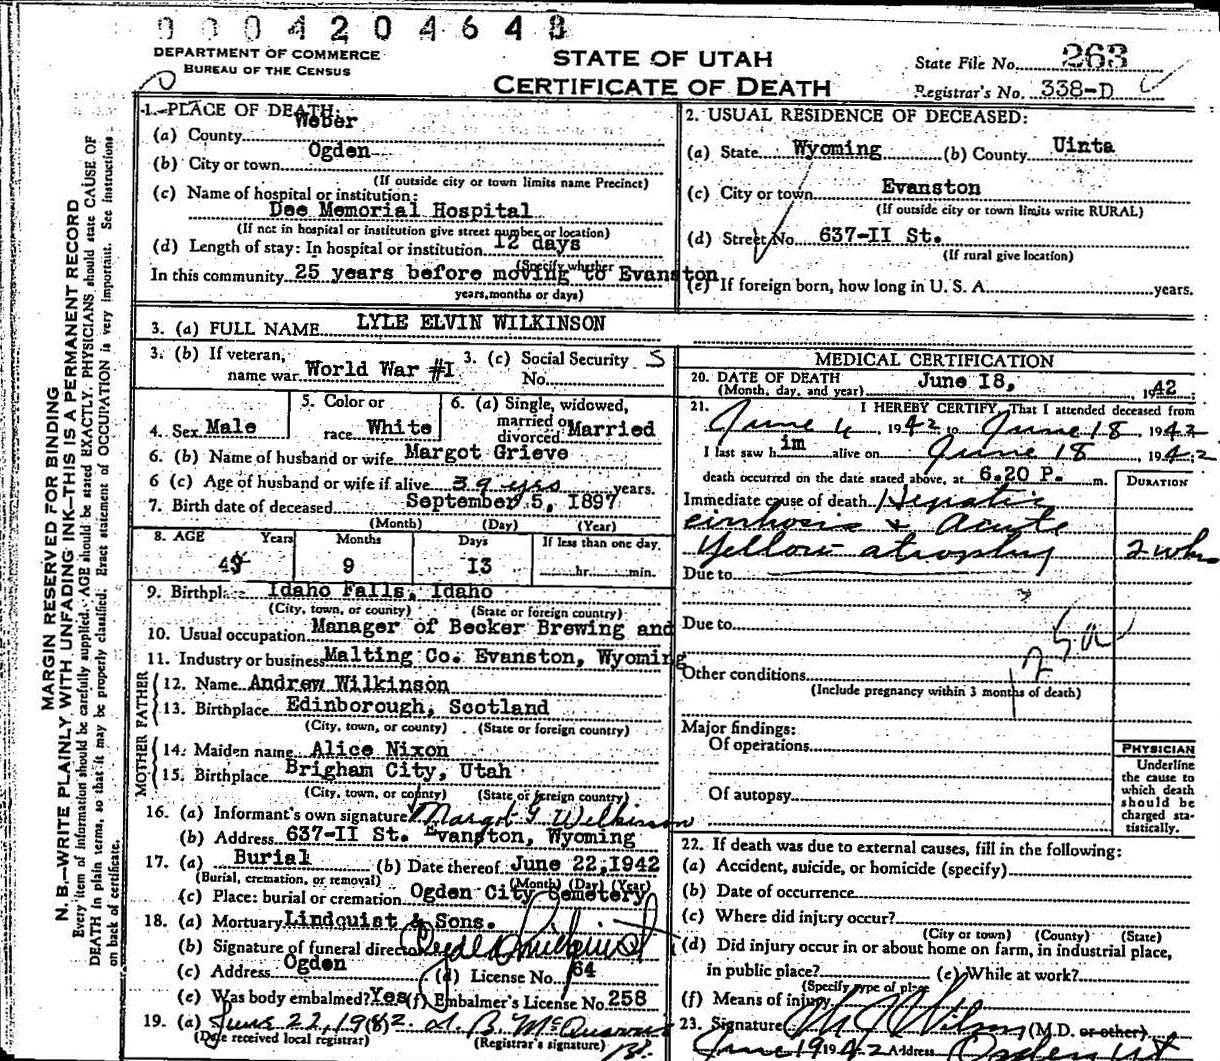 0 0 0 4 2 0 4 6 4 8
DEPARTMENT OF COMMERCE
BUREAU OF THE CENSUS
STATE OF UTAH
CERTIFICATE OF DEATH
State File No. 263
Registrar's No. 338-D
MARGIN RESERVED FOR BINDING
N. B.—WRITE PLAINLY WITH UNFADING INK—THIS IS A PERMANENT RECORD
Every item of information should be carefully supplied. AGE should be stated EXACTLY. PHYSICIANS should state CAUSE OF
DEATH in plain terms, so that it may be properly classified. Exact statement of OCCUPATION is very important. See instructions
on back of certificate.
1.—PLACE OF DEATH:
(a) County Weber
(b) City or town Ogden
(If outside city or town limits name Precinct)
(c) Name of hospital or institution:
Dee Memorial Hospital
(If not in hospital or institution give street number or location)
(d) Length of stay: In hospital or institution 12 days
(Specify whether
In this community 25 years before moving to Evanston
years, months or days)
2. USUAL RESIDENCE OF DECEASED:
(a) State Wyoming (b) County Uinta
(c) City or town Evanston
(If outside city or town limits write RURAL)
(d) Street No. 637-II St.
(If rural give location)
(e) If foreign born, how long in U. S. A. years.
3. (a) FULL NAME LYLE ELVIN WILKINSON
3. (b) If veteran, name war World War #I
3. (c) Social Security No. S
4. Sex Male
5. Color or race White
6. (a) Single, widowed, married or divorced Married
6. (b) Name of husband or wife Margot Grieve
6 (c) Age of husband or wife if alive 39 yrs years.
7. Birth date of deceased September 5, 1897
(Month) (Day) (Year)
8. AGE Years Months Days If less than one day
9 I3 hr. min.
9. Birthplace Idaho Falls, Idaho
(City, town, or county) (State or foreign country)
10. Usual occupation Manager of Becker Brewing and
11. Industry or business Malting Co. Evanston, Wyoming
FATHER
12. Name Andrew Wilkinson
13. Birthplace Edinborough, Scotland
(City, town, or county) (State or foreign country)
MOTHER
14. Maiden name Alice Nixon
15. Birthplace Brigham City, Utah
(City, town, or county) (State or foreign country)
16. (a) Informant's own signature Margot G. Wilkinson
(b) Address 637-II St. Evanston, Wyoming
17. (a) Burial (b) Date thereof June 22, 1942
(Burial, cremation, or removal) (Month) (Day) (Year)
(c) Place: burial or cremation Ogden City Cemetery
18. (a) Mortuary Lindquist & Sons.
(b) Signature of funeral director
(c) Address Ogden (d) License No. 164
(e) Was body embalmed? Yes (f) Embalmer's License No. 258
19. (a) June 22, 1942
(Date received local registrar) (Registrar's signature)
MEDICAL CERTIFICATION
20. DATE OF DEATH
(Month, day, and year) June I8, 1942
21. I HEREBY CERTIFY, That I attended deceased from
June 4, 1942 to June 18, 1942
I last saw him alive on June 18, 1942
death occurred on the date stated above, at 6.20 P. m.
DURATION
Immediate cause of death Hepatic
cirrhosis & Acute
Yellow atrophy 2 wks
Due to
Due to
Other conditions
(Include pregnancy within 3 months of death)
Major findings:
Of operations
Of autopsy
PHYSICIAN
Underline
the cause to
which death
should be
charged sta-
tistically.
22. If death was due to external causes, fill in the following:
(a) Accident, suicide, or homicide (specify)
(b) Date of occurrence
(c) Where did injury occur?
(City or town) (County) (State)
(d) Did injury occur in or about home on farm, in industrial place,
in public place? (e) While at work?
(Specify type of place
(f) Means of injury
23. Signature (M.D. or other)
June 19 1942 Address Ogden Ut